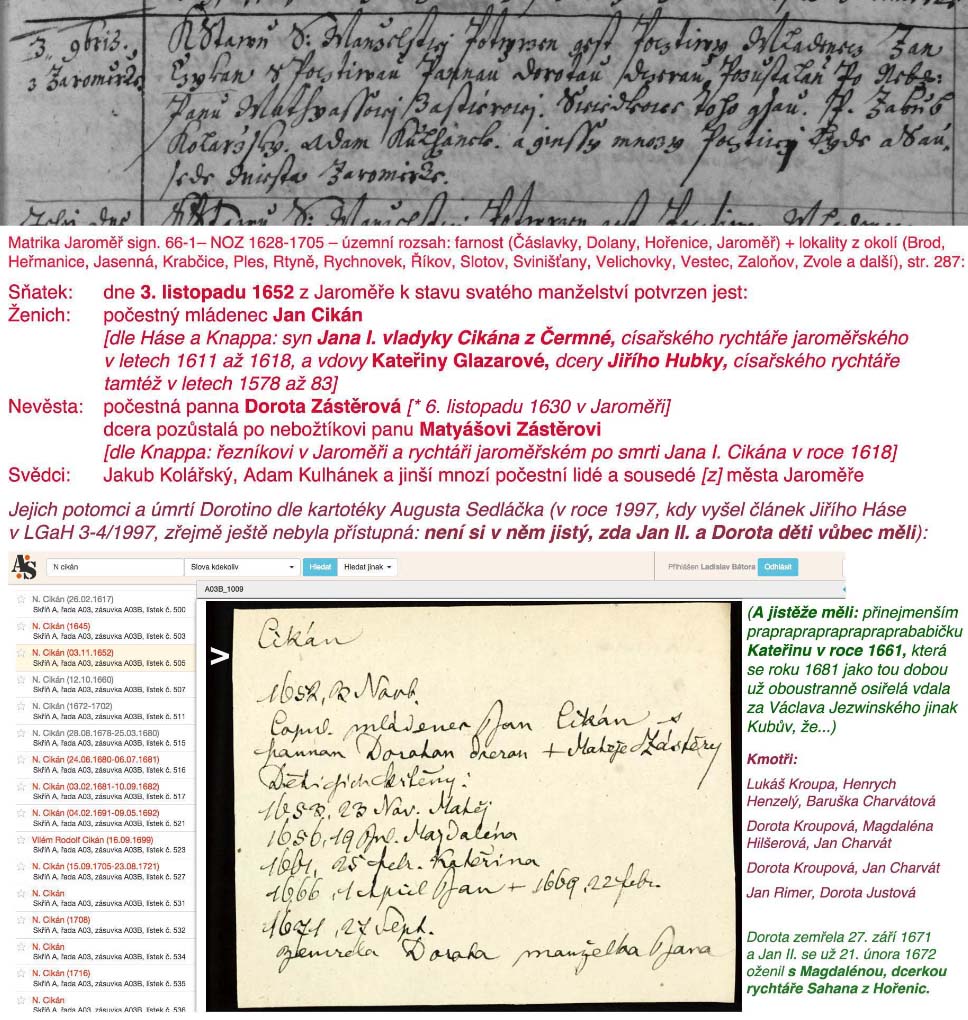 3. 9bris.
z Jaromirže.
K Stawu S: Manzelstwj Potwrzen gest Pocztiwy Mladenecz Jan
Czykan S Pocztiwau Pannau Dorotau dczerau Pozustalau Po Nebo:
Panu Mathyassowi Zastierowi. Swiedkowe toho gsau. P. Jakub
Kolarsky. Adam Kulhanek. a ginssy mnozy Pocztiwj Lyde a Sau,
sede Miesta Jaromirže.
Matrika Jaroměř sign. 66-1– NOZ 1628-1705 – územní rozsah: farnost (Čáslavky, Dolany, Hořenice, Jaroměř) + lokality z okolí (Brod,
Heřmanice, Jasenná, Krabčice, Ples, Rtyně, Rychnovek, Říkov, Slotov, Svinišťany, Velichovky, Vestec, Zaloňov, Zvole a další), str. 287:
Sňatek: dne 3. listopadu 1652 z Jaroměře k stavu svatého manželství potvrzen jest:
Ženich: počestný mládenec Jan Cikán
[dle Háse a Knappa: syn Jana I. vladyky Cikána z Čermné, císařského rychtáře jaroměřského
v letech 1611 až 1618, a vdovy Kateřiny Glazarové, dcery Jiřího Hubky, císařského rychtáře
tamtéž v letech 1578 až 83]
Nevěsta: počestná panna Dorota Zástěrová [* 6. listopadu 1630 v Jaroměři]
dcera pozůstalá po nebožtíkovi panu Matyášovi Zástěrovi
[dle Knappa: řezníkovi v Jaroměři a rychtáři jaroměřském po smrti Jana I. Cikána v roce 1618]
Svědci: Jakub Kolářský, Adam Kulhánek a jinší mnozí počestní lidé a sousedé [z] města Jaroměře
Jejich potomci a úmrtí Dorotino dle kartotéky Augusta Sedláčka (v roce 1997, kdy vyšel článek Jiřího Háse
v LGaH 3-4/1997, zřejmě ještě nebyla přístupná: není si v něm jistý, zda Jan II. a Dorota děti vůbec měli):
AS N cikán Slova kdekoliv Hledat Hledat jinak Přihlášen Ladislav Bátora Odhlásit
A03B_1009
N. Cikán (26.02.1617)
Skříň A, řada A03, zásuvka A03B, lístek č. 500
N. Cikán (1645)
Skříň A, řada A03, zásuvka A03B, lístek č. 503
N. Cikán (03.11.1652)
Skříň A, řada A03, zásuvka A03B, lístek č. 505
N. Cikán (12.10.1660)
Skříň A, řada A03, zásuvka A03B, lístek č. 507
N. Cikán (1672-1702)
Skříň A, řada A03, zásuvka A03B, lístek č. 511
N. Cikán (28.08.1678-25.03.1680)
Skříň A, řada A03, zásuvka A03B, lístek č. 515
N. Cikán (24.06.1680-06.07.1681)
Skříň A, řada A03, zásuvka A03B, lístek č. 516
N. Cikán (03.02.1681-10.09.1682)
Skříň A, řada A03, zásuvka A03B, lístek č. 517
N. Cikán (04.02.1691-09.05.1692)
Skříň A, řada A03, zásuvka A03B, lístek č. 521
Vilém Rodolf Cikán (16.09.1699)
Skříň A, řada A03, zásuvka A03B, lístek č. 523
N. Cikán (15.09.1705-23.08.1721)
Skříň A, řada A03, zásuvka A03B, lístek č. 527
N. Cikán
Skříň A, řada A03, zásuvka A03B, lístek č. 531
N. Cikán (1708)
Skříň A, řada A03, zásuvka A03B, lístek č. 532
N. Cikán
Skříň A, řada A03, zásuvka A03B, lístek č. 534
N. Cikán (1716)
Skříň A, řada A03, zásuvka A03B, lístek č. 535
N. Cikán
Skříň A, řada A03, zásuvka A03B, lístek č. 536
Cikán
Copul. mládenec Jan Cikán s
pannau Dorotau dcerau + Matěje Zástěry
Děti gich křtěny:
1653, 23 Nov. Matěj
1656, 19 Magdalena
1661, 25 febr. Kateřina
1666, 1 April Jan + 1669, 22 febr.
1671, 27 Sept.
zemřela Dorota manželka Jana
(A jistěže měli: přinejmenším
praprapraprapraprapraprababičku
Kateřinu v roce 1661, která
se roku 1681 jako tou dobou
už oboustranně osiřelá vdala
za Václava Jezwinského jinak
Kubův, že...)
Kmotři:
Lukáš Kroupa, Henrych
Henzelý, Baruška Charvátová
Dorota Kroupová, Magdaléna
Hilšerová, Jan Charvát
Dorota Kroupová, Jan Charvát
Jan Rimer, Dorota Justová
Dorota zemřela 27. září 1671
a Jan II. se už 21. února 1672
oženil s Magdalénou, dcerkou
rychtáře Sahana z Hořenic.